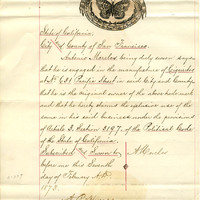 State of California
City and County of San Francisco
Antonio Morelos being duly sworn says
that he is engaged in the manufacture of Cigarettes
At No 631 Pacific Street in said City and County
that he is the original owner of the above trade mark
and that he hereby claims the exclusive use of the
same in his said business and under the provisions
of Article 3. Section 3197. of the Political Code
of the State of California.
Subscribed and Sworn to
before me this Seventh
day of February A.D.
1873.
A Morelos